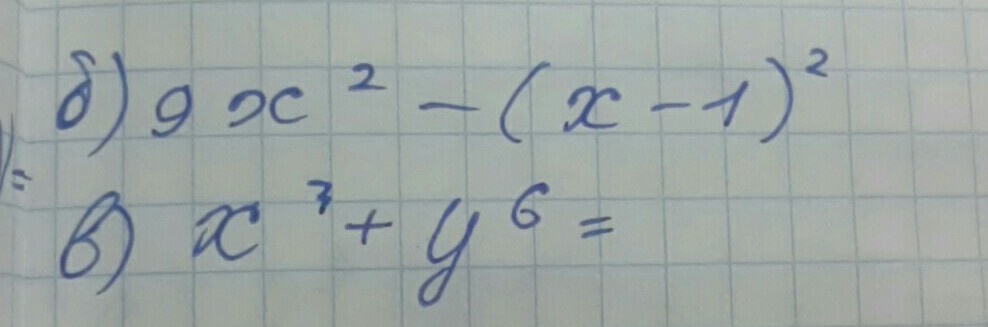 б) 9x² − (x − 1)²
в) x³ + y⁶ =